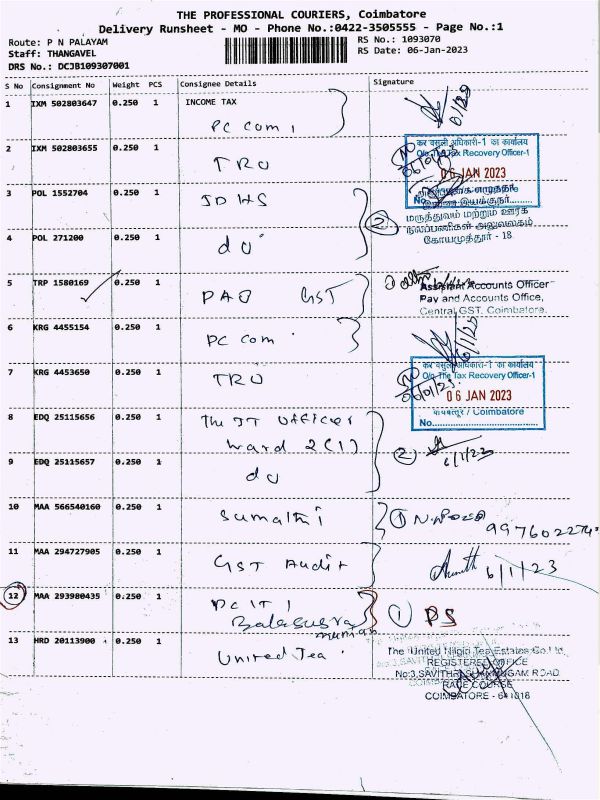 THE PROFESSIONAL COURIERS, Coimbatore
Delivery Runsheet - MO - Phone No.:0422-3505555 - Page No.:1
Route: P N PALAYAM
RS No.: 1093070
Staff: THANGAVEL
RS Date: 06-Jan-2023
DRS No.: DCJB109307001
S No Consignment No Weight PCS Consignee Details Signature
1 IXM 502803647 0.250 1 INCOME TAX
PC Com 1
2 IXM 502803655 0.250 1
TRO
कर वसूली अधिकारी-1 का कार्यालय
O/o The Tax Recovery Officer-1
06 JAN 2023
No.
3 POL 1552704 0.250 1 JDHS
மருத்துவம் மற்றும் ஊரக
நலப்பணிகள் அலுவலகம்
கோயமுத்தூர் - 18
2
4 POL 271200 0.250 1 do
5 TRP 1580169 0.250 1 PAO GST
1
Assistant Accounts Officer
Pay and Accounts Office,
Central GST, Coimbatore.
6 KRG 4455154 0.250 1 PC Com
6/1/23
7 KRG 4453650 0.250 1 TRO
कर वसूली अधिकारी-1 का कार्यालय
O/o The Tax Recovery Officer-1
06 JAN 2023
कोयंबत्तूर / Coimbatore
No.
8 EDQ 25115656 0.250 1 The IT Officer
Ward 2(1)
2 6/1/23
9 EDQ 25115657 0.250 1 do
10 MAA 566540160 0.250 1 Sumathi
1
11 MAA 294727905 0.250 1 GST Audit
6/1/23
12 MAA 293980435 0.250 1 PC IT 1
Balasubra
manian
1 PS
13 HRD 20113900 0.250 1 United Tea
The United Nilgiri Tea Estates Co Ltd
REGISTERED OFFICE
ROAD
RACE COURSE
COIMBATORE - 641018